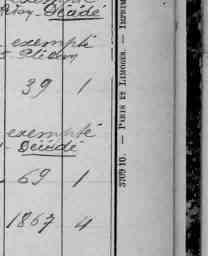 exempté
Décédé
exempté
39 1
exempté
Décédé
69 1
1867 4
3709 10. — PARIS ET LIMOGES. — IMPRIM